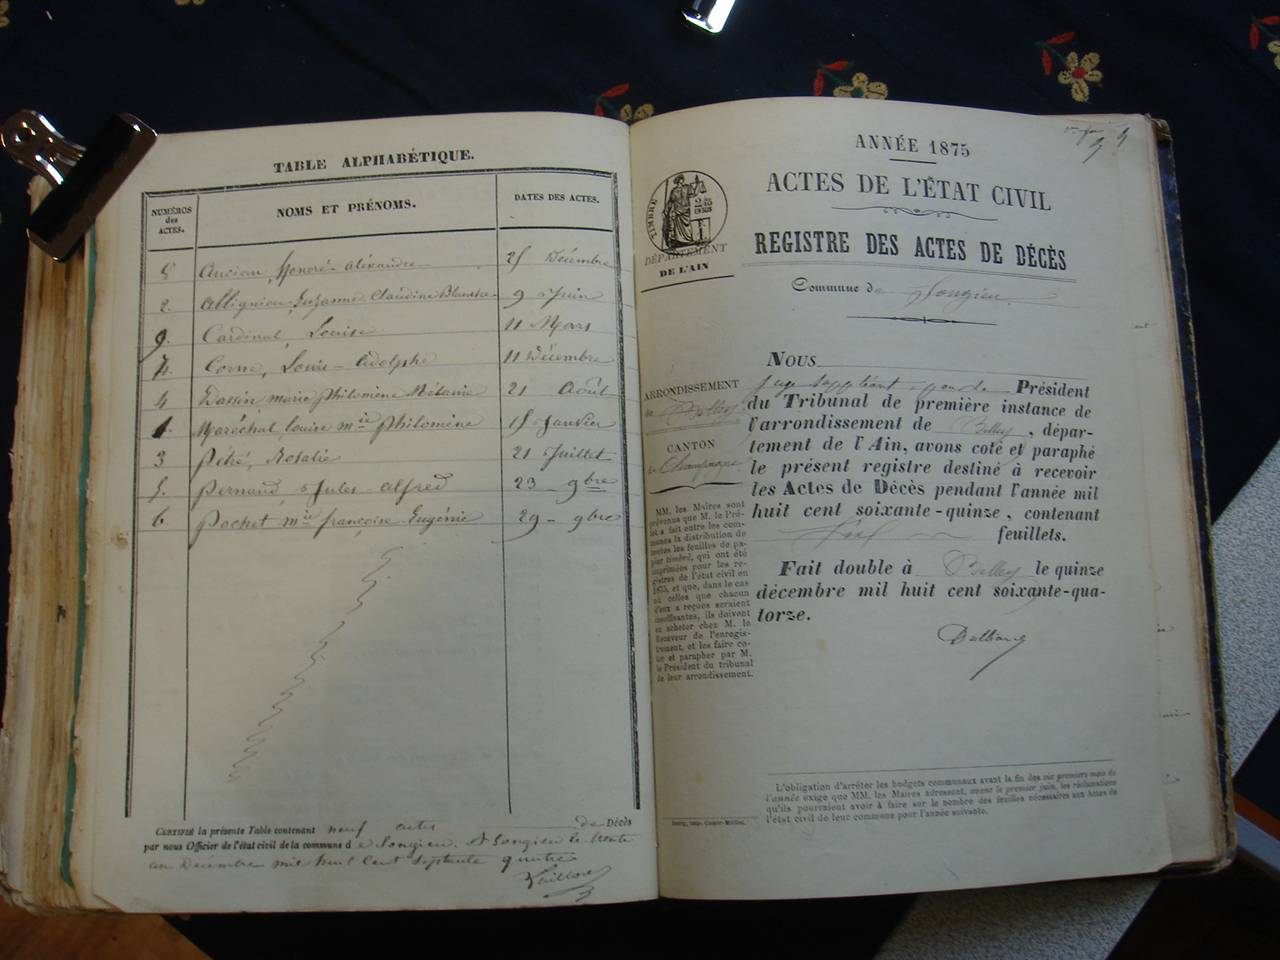 TABLE ALPHABÉTIQUE.
NUMÉROS des ACTES. NOMS ET PRÉNOMS. DATES DES ACTES.
8 Ancian, Honoré-Alexandre 25 Décembre
2. Allignieu, Suzanne Claudine Blanche 9 Juin
9. Cardinal, Louise 11 Mars
7. Corne, Louis-Adolphe 11 Décembre
4 marie Philomène 21 Août
1. Maréchal, louise mie Philomène 15 Janvier
3 Rosalie 21 Juillet
5. Pernaud, Jules-alfred 23 9bre
6. Pochet mie françoise-Eugénie 29 - 9bre
CERTIFIÉ la présente Table contenant neuf actes de DÉCÈS
par nous Officier de l'état civil de la commune de Songieu. A Songieu le trente
un Décembre mil huit cent septante quatre
1875
ANNÉE 1875
ACTES DE L'ÉTAT CIVIL
TIMBRE
DÉPARTEMENT
DE L'AIN
REGISTRE DES ACTES DE DÉCÈS
Commune de Songieu
ARRONDISSEMENT
de Belley
CANTON
de Champagne
MM. les Maires sont
prévenus que M. le Pré-
fet a fait entre les com-
munes la distribution de
toutes les feuilles de pa-
pier timbré, qui ont été
imprimées pour les re-
gistres de l'état civil en
1875, et que, dans le cas
où celles que chacun
d'eux a reçues seraient
insuffisantes, ils doivent
en acheter chez M. le
Receveur de l'enregis-
trement, et les faire co-
ter et parapher par M.
le Président du tribunal
de leur arrondissement.
NOUS
juge suppléant Président
du Tribunal de première instance de
l'arrondissement de Belley, dépar-
tement de l'Ain, avons coté et paraphé
le présent registre destiné à recevoir
les Actes de Décès pendant l'année mil
huit cent soixante-quinze, contenant
feuillets.
Fait double à Belley le quinze
décembre mil huit cent soixante-qua-
torze.
L'obligation d'arrêter les budgets communaux avant la fin des six premiers mois de
l'année exige que MM. les Maires adressent, avant le premier juin, les réclamations
qu'ils pourraient avoir à faire sur le nombre des feuilles nécessaires aux Actes de
l'état civil de leur commune pour l'année suivante.